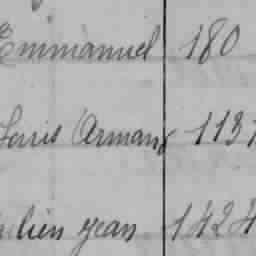 Emmanuel 180
Louis Armand 1131
ulien jean 1424